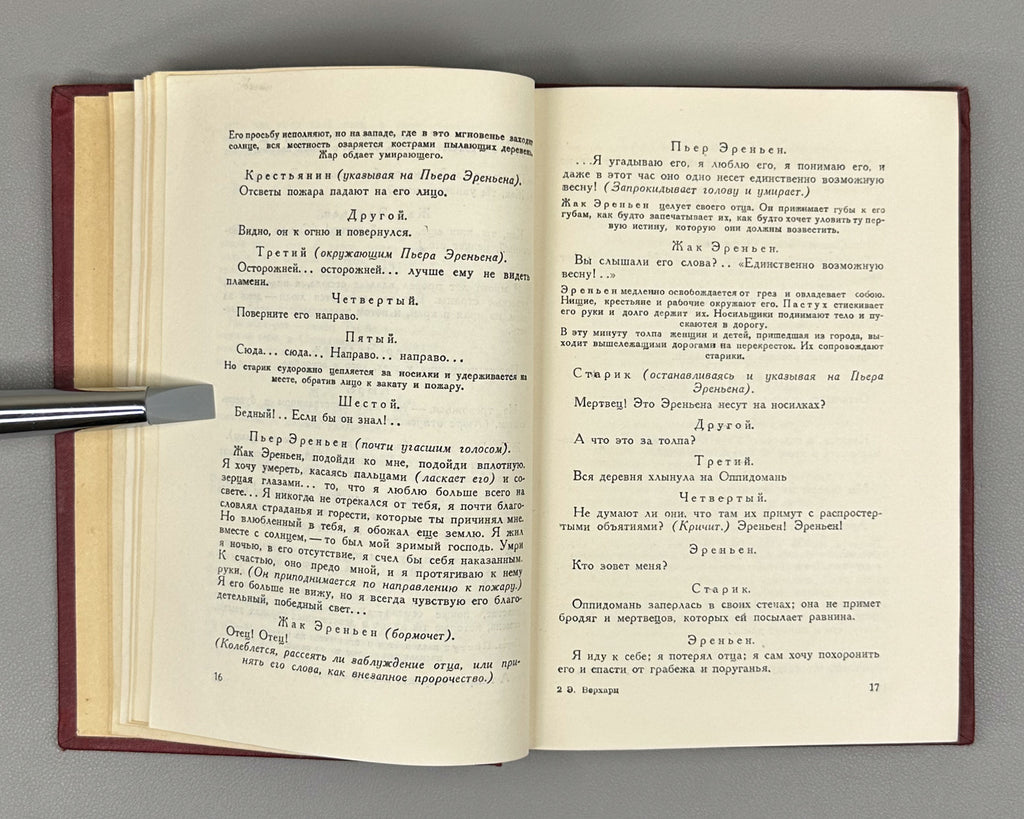 Его просьбу исполняют, но на западе, где в это мгновенье заходит
солнце, вся местность озаряется кострами пылающих деревень.
Жар обдает умирающего.
Крестьянин (указывая на Пьера Эреньена).
Отсветы пожара падают на его лицо.
Другой.
Видно, он к огню и повернулся.
Третий (окружающим Пьера Эреньена).
Осторожней... осторожней... лучше ему не видеть
пламени.
Четвертый.
Поверните его направо.
Пятый.
Сюда... сюда... Направо... направо...
Но старик судорожно цепляется за носилки и удерживается на
месте, обратив лицо к закату и пожару.
Шестой.
Бедный!.. Если бы он знал!..
Пьер Эреньен (почти угасшим голосом).
Жак Эреньен, подойди ко мне, подойди вплотную.
Я хочу умереть, касаясь пальцами (ласкает его) и со-
зерцая глазами... то, что я люблю больше всего на
свете... Я никогда не отрекался от тебя, я почти благо-
словлял страданья и горести, которые ты причинял мне.
Но влюбленный в тебя, я обожал еще землю. Я жил
вместе с солнцем, — то был мой зримый господь. Умри
я ночью, в его отсутствие, я счел бы себя наказанным.
К счастью, оно предо мной, и я протягиваю к нему
руки. (Он приподнимается по направлению к пожару.)
Я его больше не вижу, но я всегда чувствую его благо-
детельный, победный свет...
Жак Эреньен (бормочет).
Отец! Отец!
(Колеблется, рассеять ли заблуждение отца, или при-
нять его слова, как внезапное пророчество.)
16
Пьер Эреньен.
...Я угадываю его, я люблю его, я понимаю его, и
даже в этот час оно одно несет единственно возможную
весну! (Запрокидывает голову и умирает.)
Жак Эреньен целует своего отца. Он прижимает губы к его
губам, как будто запечатывает их, как будто хочет уловить ту пер-
вую истину, которую они должны возвестить.
Жак Эреньен.
Вы слышали его слова?.. «Единственно возможную
весну!..»
Эреньен медленно освобождается от грез и овладевает собою.
Нищие, крестьяне и рабочие окружают его. Пастух стискивает
его руки и долго держит их. Носильщики поднимают тело и пу-
скаются в дорогу.
В эту минуту толпа женщин и детей, пришедшая из города, вы-
ходит вышележащими дорогами на перекресток. Их сопровождают
старики.
Старик (останавливаясь и указывая на Пьера
Эреньена).
Мертвец! Это Эреньена несут на носилках?
Другой.
А что это за толпа?
Третий.
Вся деревня хлынула на Оппидомань
Четвертый.
Не думают ли они, что там их примут с распростер-
тыми объятиями? (Кричит.) Эреньен! Эреньен!
Эреньен.
Кто зовет меня?
Старик.
Оппидомань заперлась в своих стенах; она не примет
бродяг и мертвецов, которых ей посылает равнина.
Эреньен.
Я иду к себе; я потерял отца; я сам хочу похоронить
его и спасти от грабежа и поруганья.
2 Э. Верхарн
17